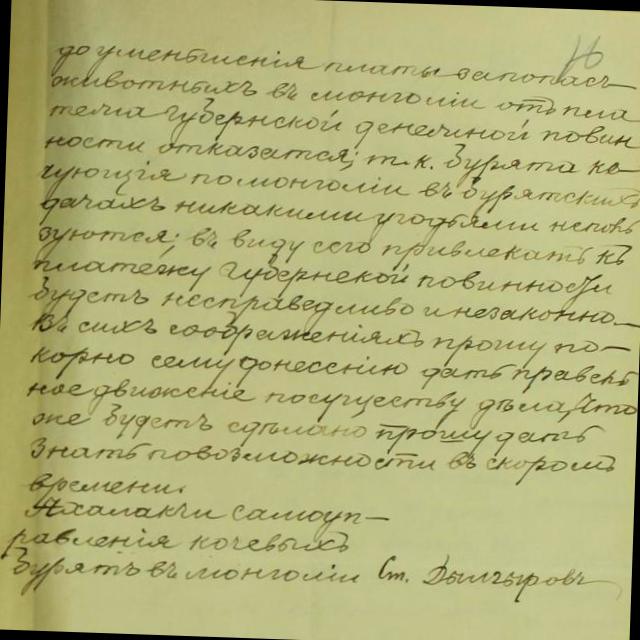 до уменьшенія платы за попасъ
животныхъ въ монголіи отъ пла
тежа губернской денежной повин
ности отказатся; т.к. бурята ко-
чующія по монголіи въ бурятскихъ
дачахъ никакими угодьями неполь
зуются; въ виду сего привлекать къ
платежу губернской повинности
будетъ несправедливо и незаконно.—
Въ сихъ соображеніяхъ прошу по-
корно сему донесенію дать правель
ное движеніе посуществу дѣла, что
же будетъ сдѣлано прошу дать
знать повозможности въ скоромъ
времени.
Ахалакчи самоуп-
равленія кочевыхъ
бурятъ въ монголіи Ст. Дылгыровъ
16